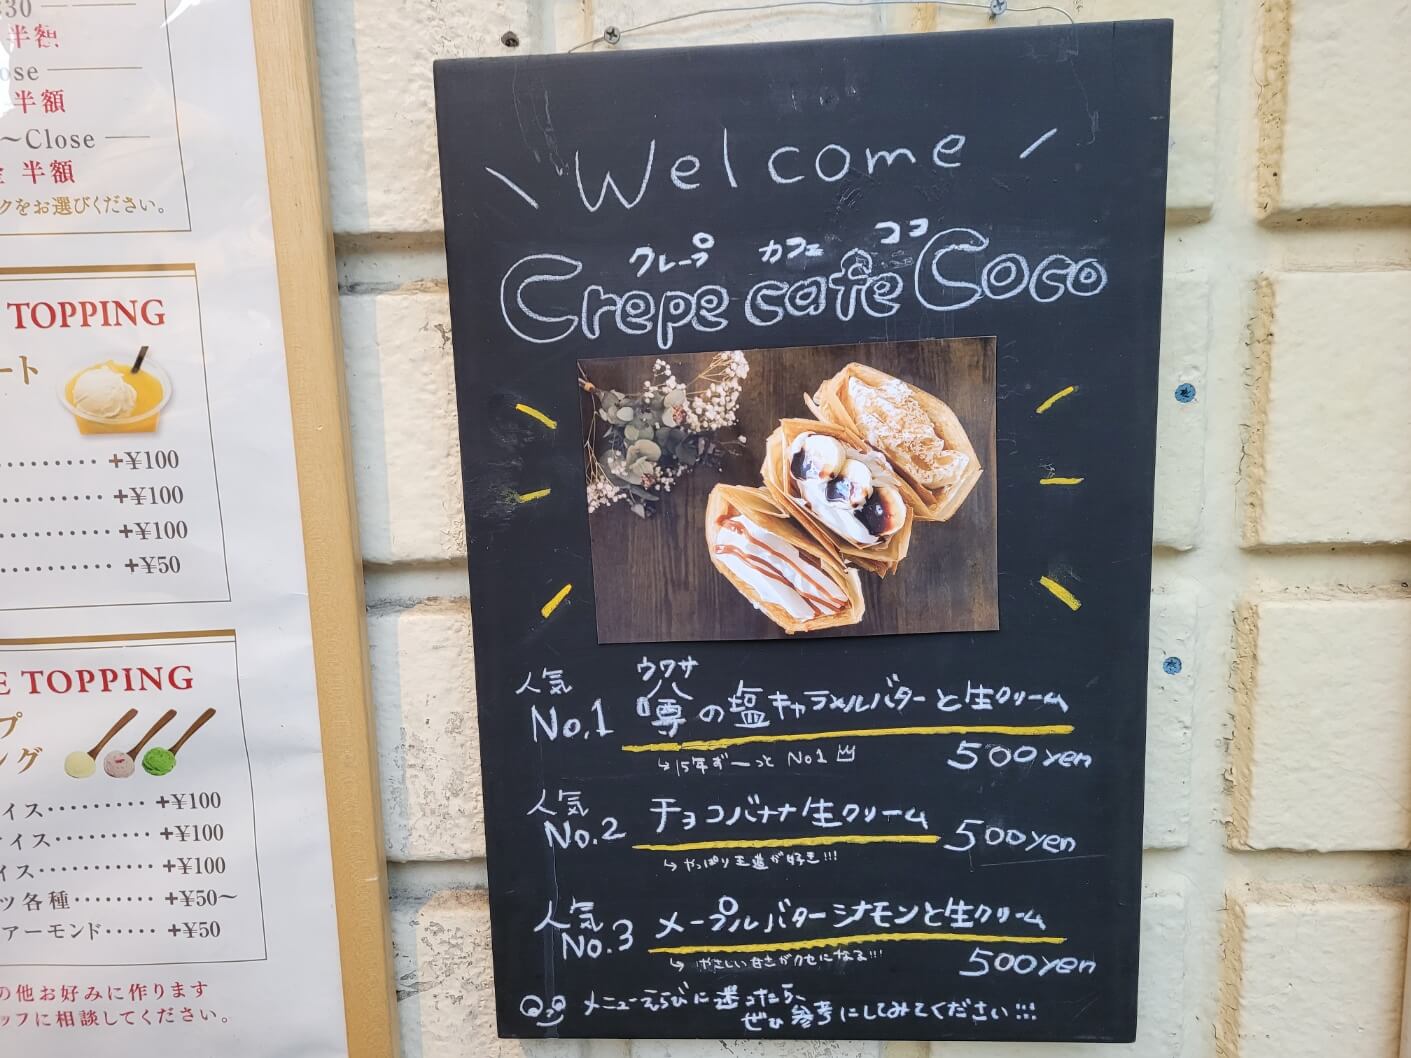 :30
半額
ose
半額
～Close
半額
クをお選びください。
TOPPING
ート
+¥100
+¥100
+¥100
+¥50
E TOPPING
プ
ング
イス········· +¥100
イス········· +¥100
イス········· +¥100
ツ各種········ +¥50～
アーモンド····· +¥50
の他お好みに作ります
ッフに相談してください。
Welcome
クレープ カフェ ココ
Crepe cafe Coco
人気 No.1 噂の塩キャラメルバターと生クリーム
ウワサ
↳15年ず〜っと No1
500yen
人気 No.2 チョコバナナ生クリーム 500yen
↳やっぱり王道が好き!!!
人気 No.3 メープルバターシナモンと生クリーム
↳やさしい甘さがクセになる!!!
500yen
メニューえらびに迷ったら、
ぜひ参考にしてみてください!!!